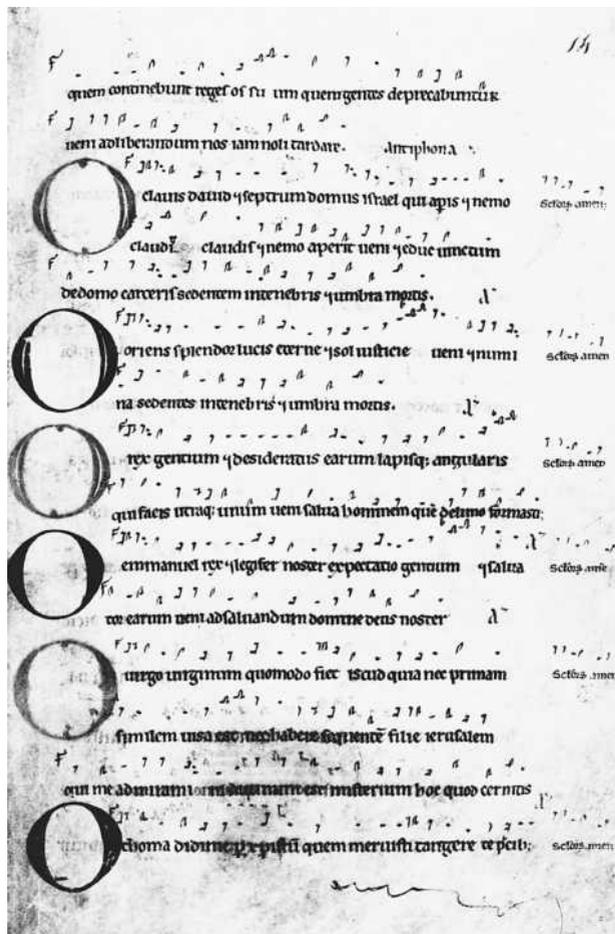 14
quem continebunt reges os su um quem gentes deprecabuntur
ueni ad liberandum nos iam noli tardare. antiphona
O clauis dauid &septrum domus israel qui apis & nemo sclor amen.
claudit claudis & nemo aperit ueni & educ uinctum
de domo carceris sedentem in tenebris & umbra mortis. A
O oriens splendor lucis eterne & sol iusticie ueni & inlumi sclor amen
na sedentes in tenebris & umbra mortis. A
O rex gentium & desideratus earum lapisq; angularis sclor amen
qui facis utraq; unum ueni salua hominem quē de limo formasti:
O emmanuel rex & legifer noster expectatio gentium & salua sclor ame
tor earum ueni ad saluandum domine deus noster A
O uirgo uirginum quomodo fiet iscud quia nec primam sclor amen
similem uisa es nec habere sequentē filie ierusalem
qui me admirami misterium hoc quod cernitis
O thoma didime quem meruisti tangere te pcib; sclor amen